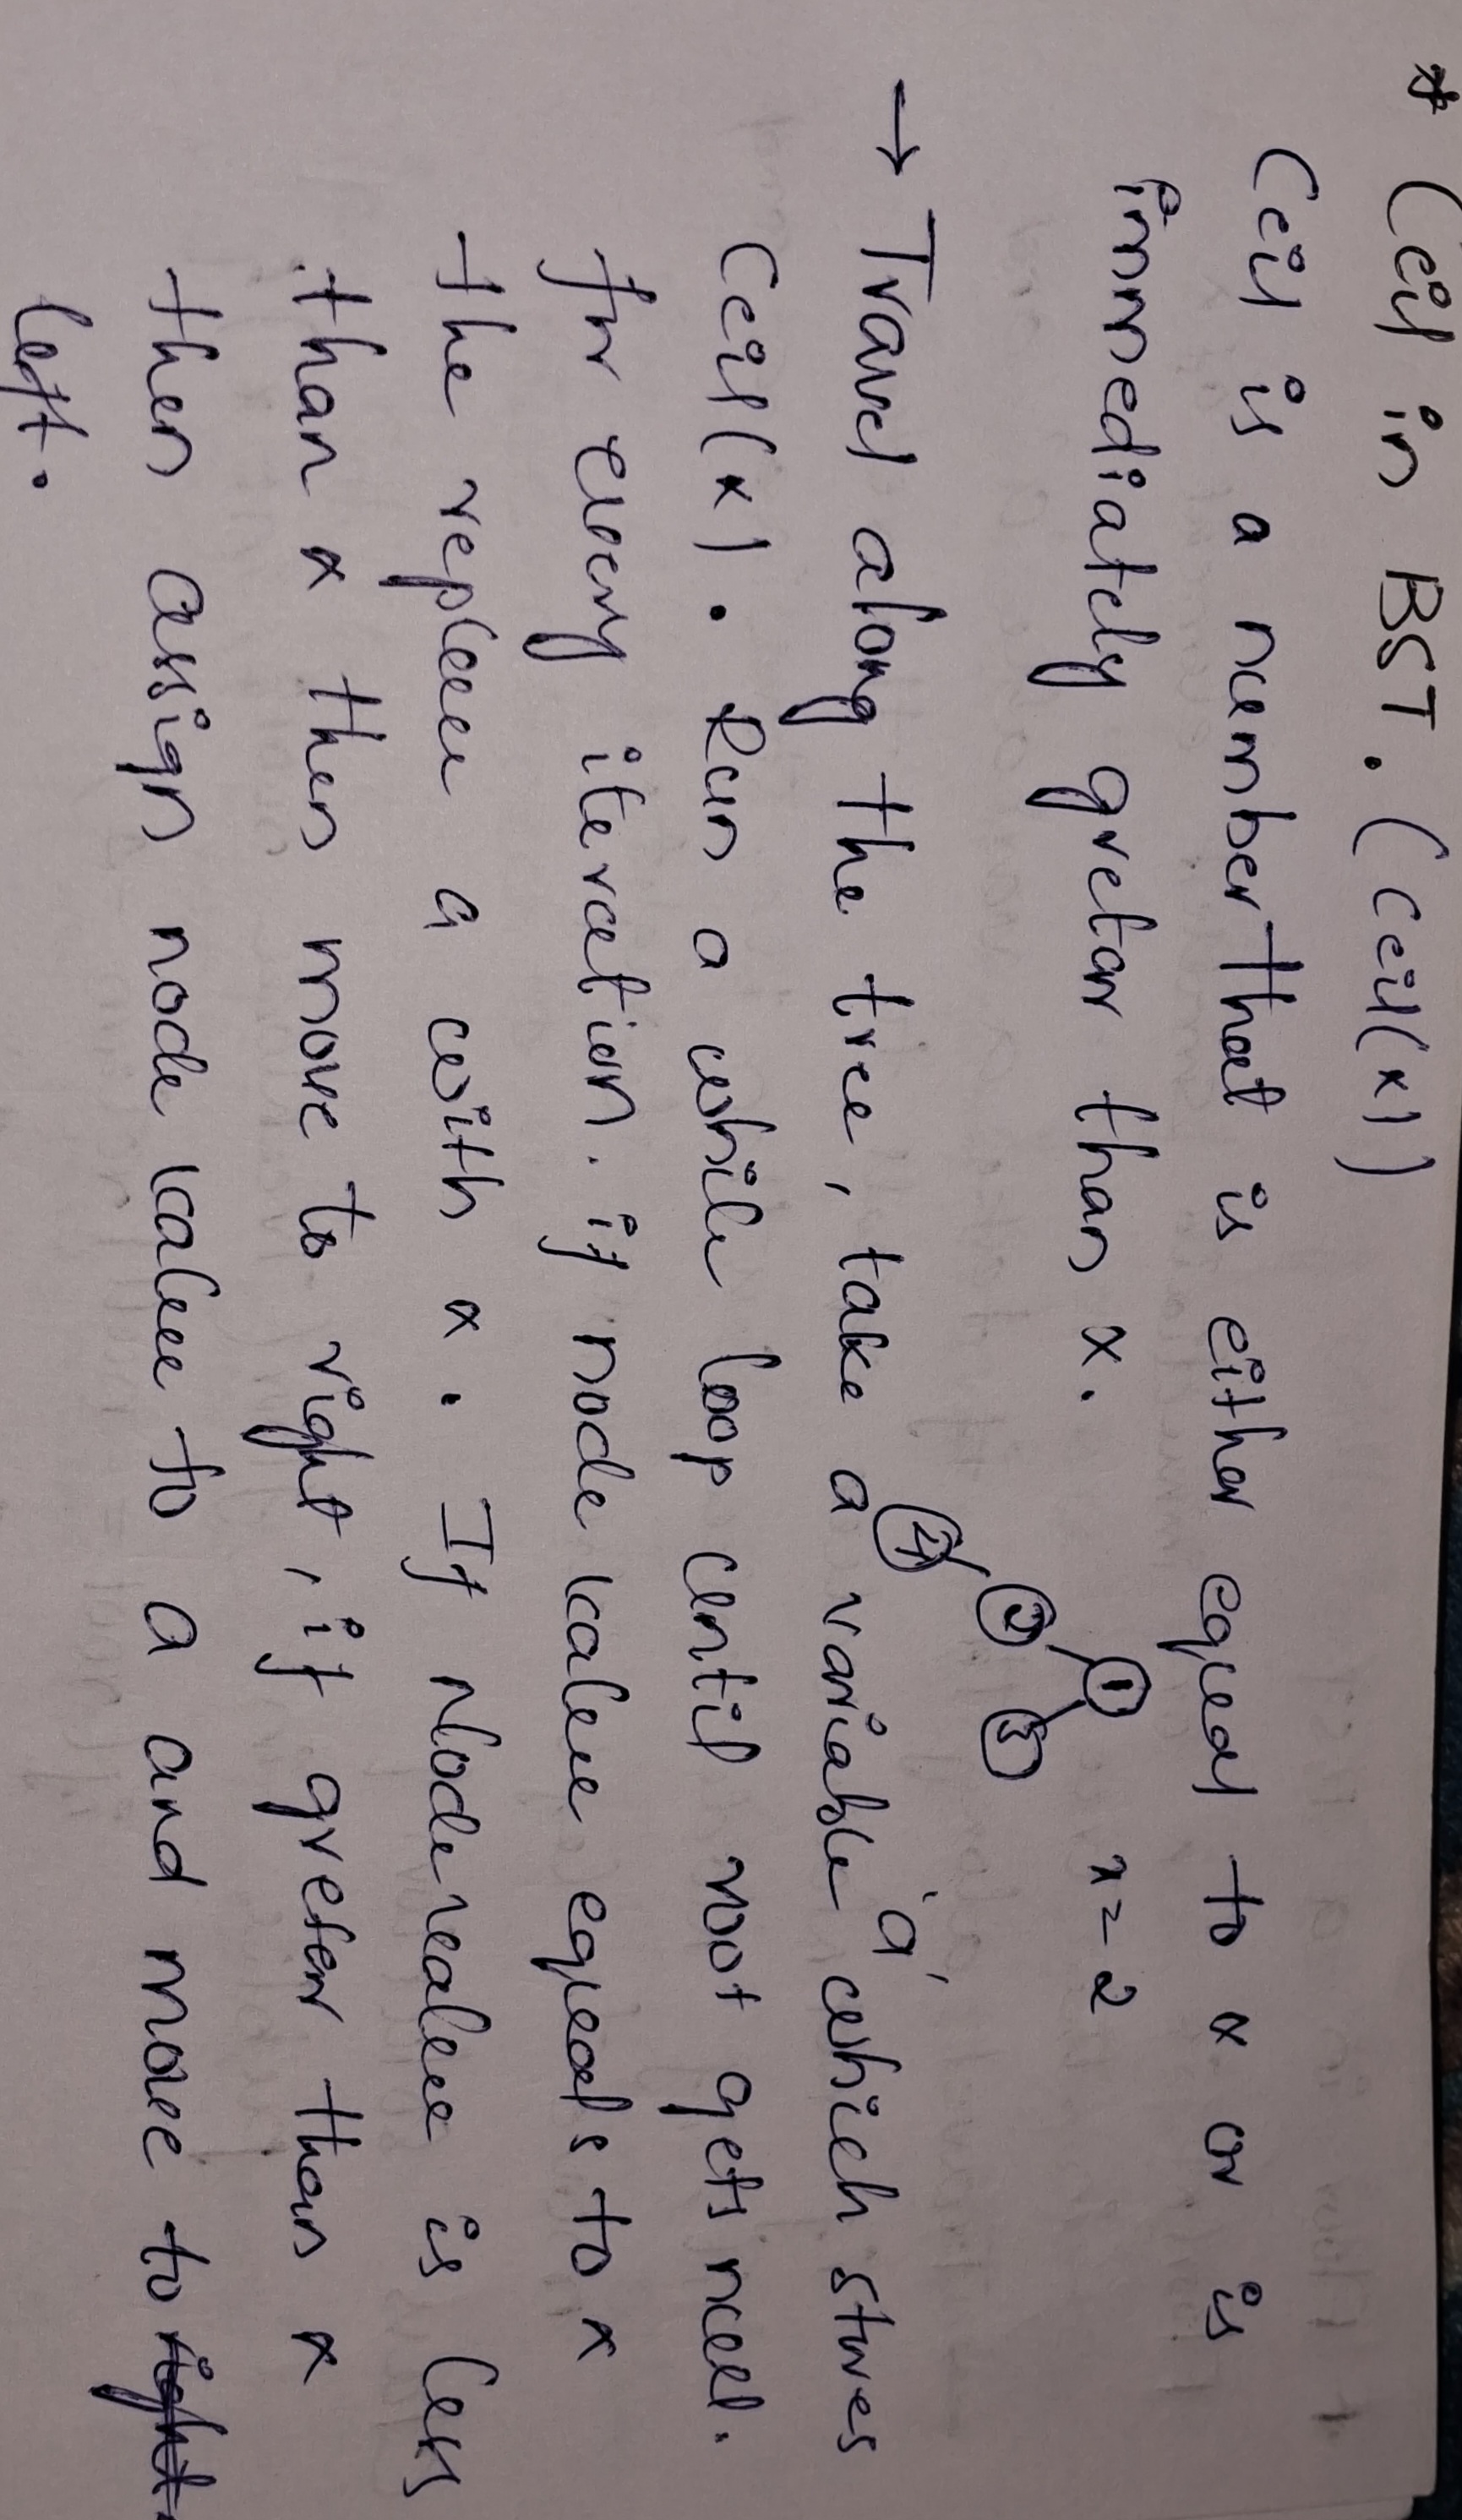 * Ceil in BST. (Ceil(x))
Ceil is a number that is either equal to x or is
immediately gretar than x.
1 x=2
2 3
4
→ Travel along the tree, take a variable 'a' which stores
Ceil(x). Run a while loop until root gets null.
for every iteration. if node value equals to x
the replace a with x. If Node value is less
than x then move to right, if greter than x
then assign node value to a and move to
left.